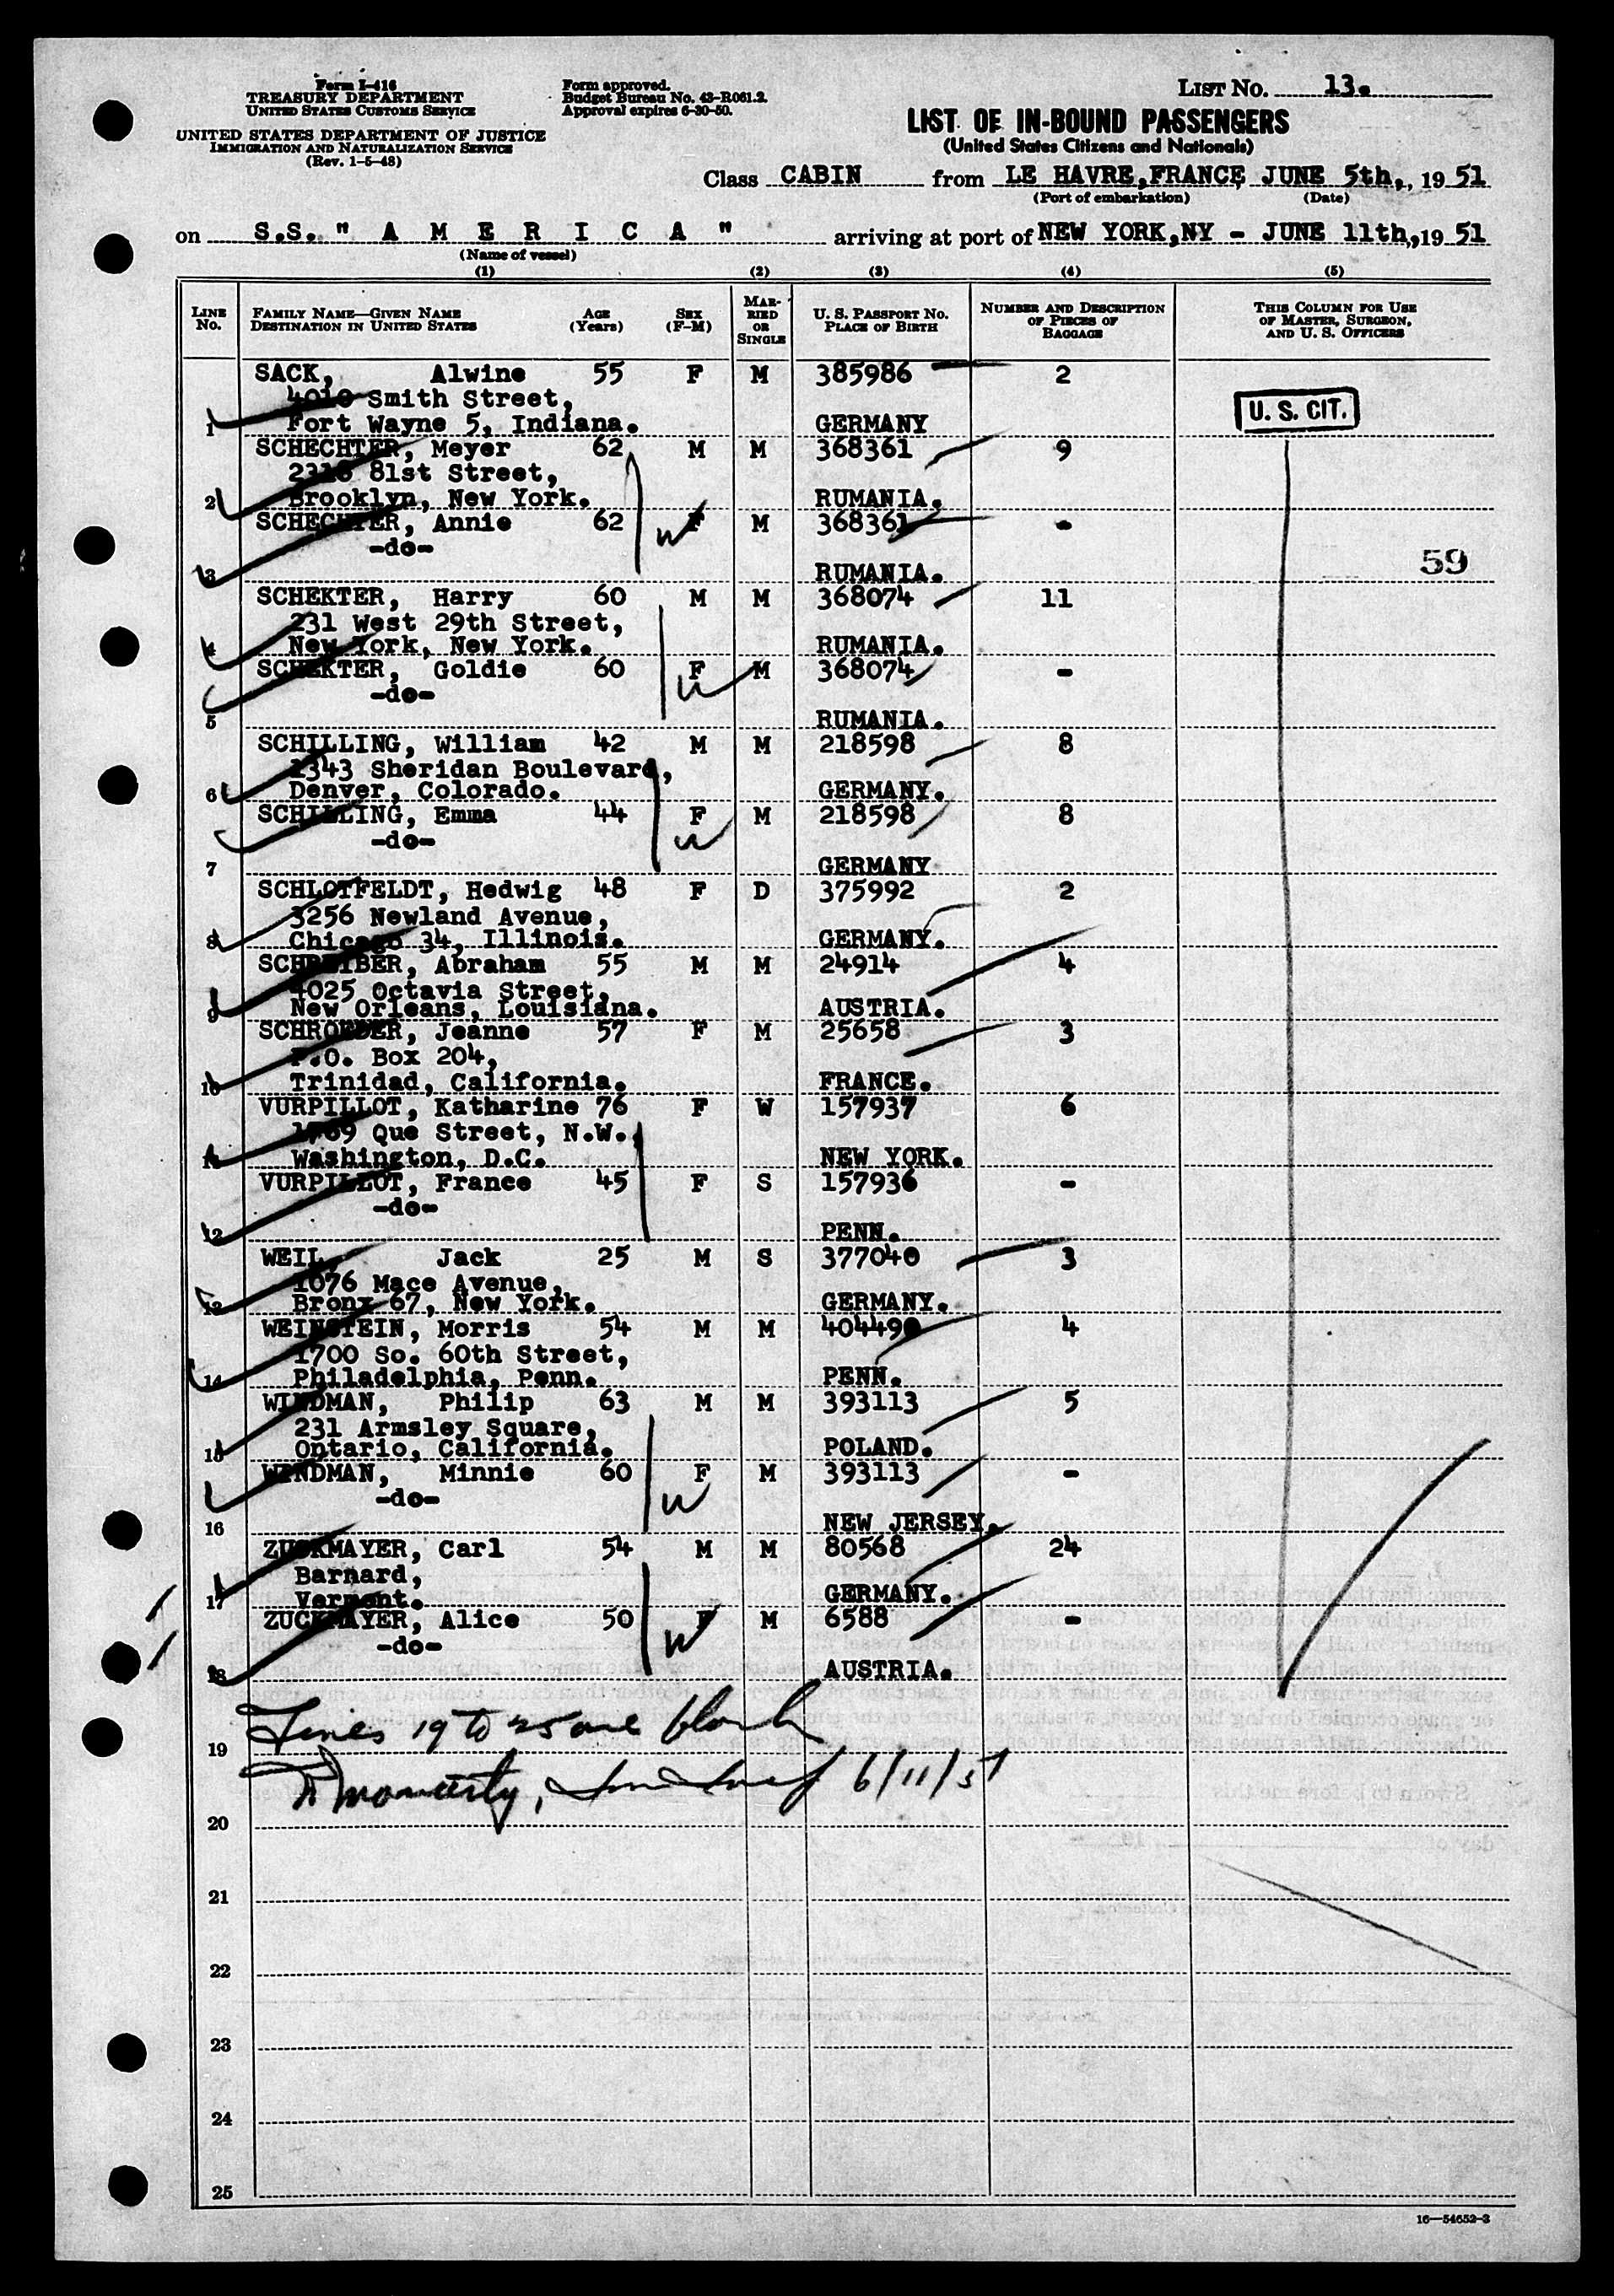 Form I-416
TREASURY DEPARTMENT
UNITED STATES CUSTOMS SERVICE
UNITED STATES DEPARTMENT OF JUSTICE
IMMIGRATION AND NATURALIZATION SERVICE
(Rev. 1-5-48)
Form approved.
Budget Bureau No. 43-R061.2.
Approval expires 6-30-50.
LIST NO. 13.
LIST OF IN-BOUND PASSENGERS
(United States Citizens and Nationals)
Class CABIN from LE HAVRE, FRANCE, JUNE 5th., 19 51
(Port of embarkation) (Date)
on S.S. " A M E R I C A " arriving at port of NEW YORK, NY - JUNE 11th, 19 51
(Name of vessel)
(1) (2) (3) (4) (5)
LINE NO. FAMILY NAME—GIVEN NAME DESTINATION IN UNITED STATES AGE (Years) SEX (F-M) MARRIED OR SINGLE U. S. PASSPORT NO. PLACE OF BIRTH NUMBER AND DESCRIPTION OF PIECES OF BAGGAGE THIS COLUMN FOR USE OF MASTER, SURGEON, AND U. S. OFFICERS
SACK, Alwine 55 F M 385986 2
4010 Smith Street,
U. S. CIT.
1 Fort Wayne 5, Indiana. GERMANY
SCHECHTER, Meyer 62 M M 368361 9
81st Street,
2 Brooklyn, New York. RUMANIA.
SCHECHTER, Annie 62 F M 368361 -
W
-do-
59
3 RUMANIA.
SCHEKTER, Harry 60 M M 368074 11
231 West 29th Street,
4 New York, New York. RUMANIA.
SCHEKTER, Goldie 60 F M 368074 -
W
-do-
5 RUMANIA.
SCHILLING, William 42 M M 218598 8
1343 Sheridan Boulevard,
6 Denver, Colorado. GERMANY.
SCHILLING, Emma 44 F M 218598 8
W
-do-
7 GERMANY
SCHLOTFELDT, Hedwig 48 F D 375992 2
3256 Newland Avenue,
8 Chicago 34, Illinois. GERMANY.
SCHREIBER, Abraham 55 M M 24914 4
4025 Octavia Street,
9 New Orleans, Louisiana. AUSTRIA.
SCHROEDER, Jeanne 57 F M 25658 3
P.O. Box 204,
10 Trinidad, California. FRANCE.
VURPILLOT, Katharine 76 F W 157937 6
1769 Que Street, N.W.,
11 Washington, D.C. NEW YORK.
VURPILLOT, France 45 F S 157936 -
-do-
12 PENN.
WEIL, Jack 25 M S 377040 3
1076 Mace Avenue,
13 Bronx 67, New York. GERMANY.
WEINSTEIN, Morris 54 M M 404490 4
1700 So. 60th Street,
14 Philadelphia, Penn. PENN.
WINDMAN, Philip 63 M M 393113 5
231 Armsley Square,
15 Ontario, California. POLAND.
WINDMAN, Minnie 60 F M 393113 -
W
-do-
16 NEW JERSEY.
ZUCKMAYER, Carl 54 M M 80568 24
Barnard,
17 Vermont. GERMANY.
ZUCKMAYER, Alice 50 F M 6588 -
W
-do-
18 AUSTRIA.
Lines 19 to 25 are blank
19
Moriarty, 6/11/51
20
21
22
23
24
25
16—54652-3